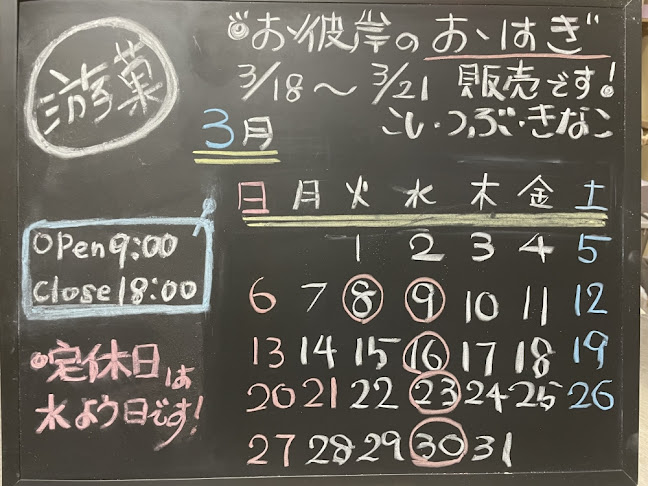 游菓
お彼岸のおはぎ
3/18～3/21 販売です!
こし・つぶ・きなこ
3月
日 月 火 水 木 金 土
1 2 3 4 5
6 7 8 9 10 11 12
13 14 15 16 17 18 19
20 21 22 23 24 25 26
27 28 29 30 31
OPen 9:00
Close 18:00
定休日は
水よう日です!